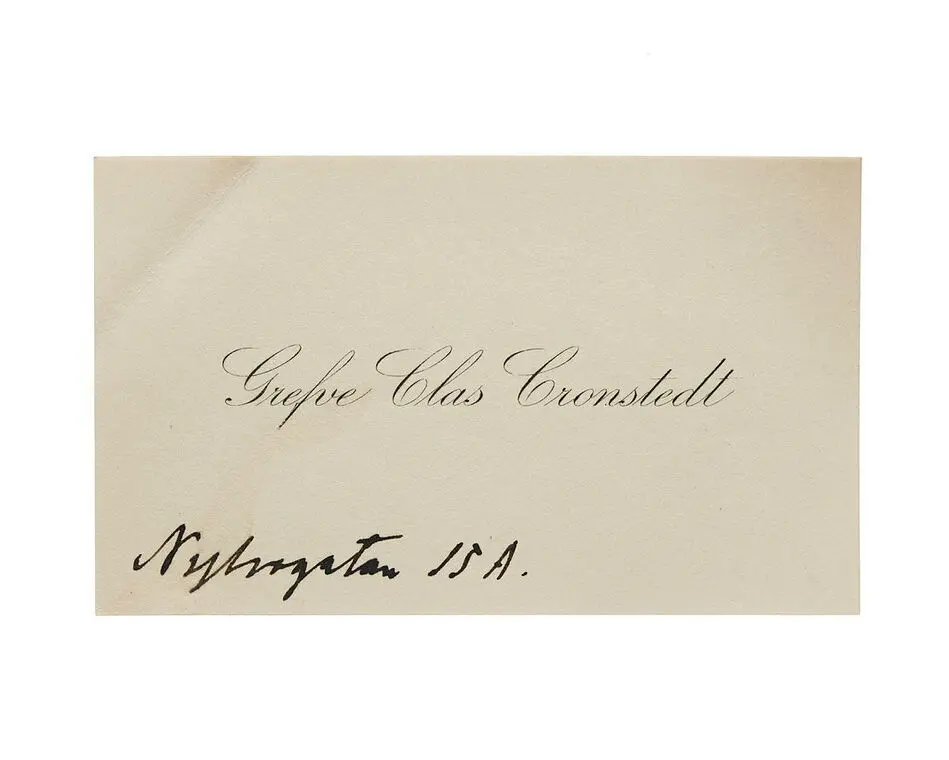 Grefve Clas Cronstedt
Nybrogatan 15 A.